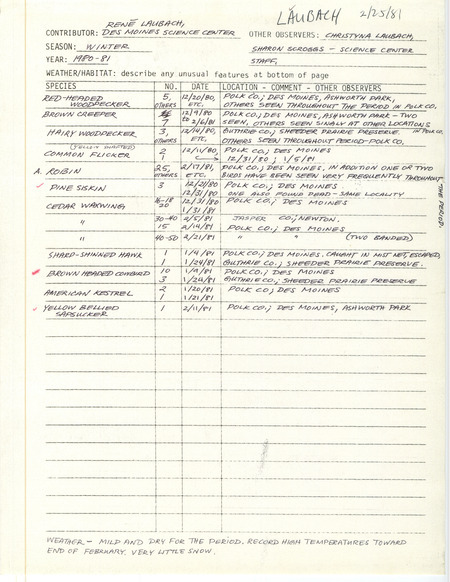 LAUBACH 2/25/81
RENÉ LAUBACH,
CONTRIBUTOR: DES MOINES SCIENCE CENTER OTHER OBSERVERS: CHRISTYNA LAUBACH,
SEASON: WINTER SHARON SCROGGS - SCIENCE CENTER
YEAR: 1980-81 STAFF,
WEATHER/HABITAT: describe any unusual features at bottom of page
SPECIES NO. DATE LOCATION - COMMENT - OTHER OBSERVERS
RED-HEADED 5, 12/20/80, POLK CO.; DES MOINES, ASHWORTH PARK,
WOODPECKER OTHERS ETC. OTHERS SEEN THROUGHOUT THE PERIOD IN POLK CO.
BROWN CREEPER 12/9/80 POLK CO.; DES MOINES, ASHWORTH PARK - TWO
7 to 2/6/81 SEEN, OTHERS SEEN SINGLY AT OTHER LOCATIONS IN POLK CO.
HAIRY WOODPECKER 3, 12/14/80, GUTHRIE CO.; SHEEDER PRAIRIE PRESERVE.
OTHERS ETC. OTHERS SEEN THROUGHOUT PERIOD-POLK CO.
(YELLOW SHAFTED) 2 12/11/80, POLK CO.; DES MOINES
COMMON FLICKER 1 12/31/80; 1/5/81
A. ROBIN 25, 2/17/81, POLK CO.; DES MOINES, IN ADDITION ONE OR TWO
OTHERS ETC. BIRDS HAVE BEEN SEEN VERY FREQUENTLY THROUGHOUT THE PERIOD.
PINE SISKIN 3 12/21/80 POLK CO.; DES MOINES
12/31/80 ONE ALSO FOUND DEAD - SAME LOCALITY
CEDAR WAXWING 16-18 12/31/80 POLK CO.; DES MOINES
20 1/31/81
" 30-40 2/5/81 JASPER CO.; NEWTON.
15 2/14/81 POLK CO.; DES MOINES
" 40-50 2/21/81 " " (TWO BANDED)
SHARP-SHINNED HAWK 1 1/4/81 POLK CO.; DES MOINES. CAUGHT IN MIST NET, ESCAPED,
1 1/24/81 GUTHRIE CO.; SHEEDER PRAIRIE PRESERVE.
BROWN HEADED COWBIRD 10 1/4/81 POLK CO.; DES MOINES
3 1/24/81 GUTHRIE CO.; SHEEDER PRAIRIE PRESERVE
AMERICAN KESTREL 2 1/20/81 POLK CO.; DES MOINES
1 1/21/81
YELLOW BELLIED 1 2/11/81 POLK CO.; DES MOINES, ASHWORTH PARK
SAPSUCKER
WEATHER - MILD AND DRY FOR THE PERIOD. RECORD HIGH TEMPERATURES TOWARD
END OF FEBRUARY. VERY LITTLE SNOW.